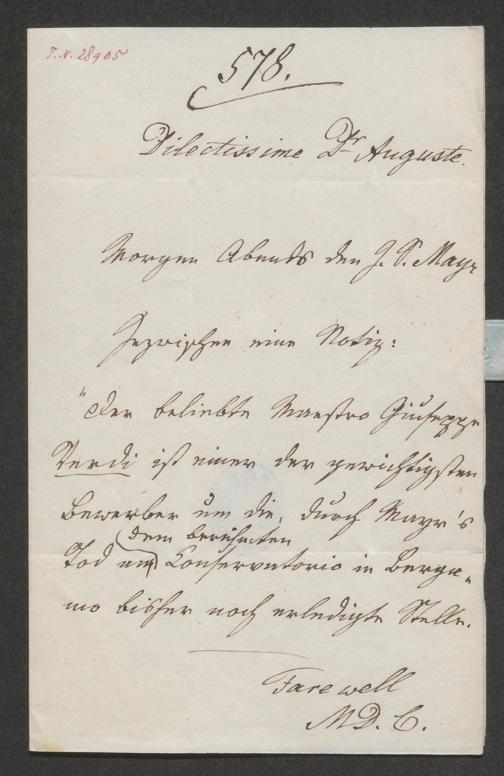 I.N. 28905
578.
Dilectissime Dr Auguste.
Morgen Abends den J. S. Mayr
Inzwischen eine Notiz:
"Der beliebte Maestro Giuseppe
Verdi ist einer der gewichtigsten
Bewerber um die, durch Mayr's
dem berühmten
Tod am Conservatorio in Berga-
mo bisher noch erledigte Stelle.
Farewell
M.D.C.